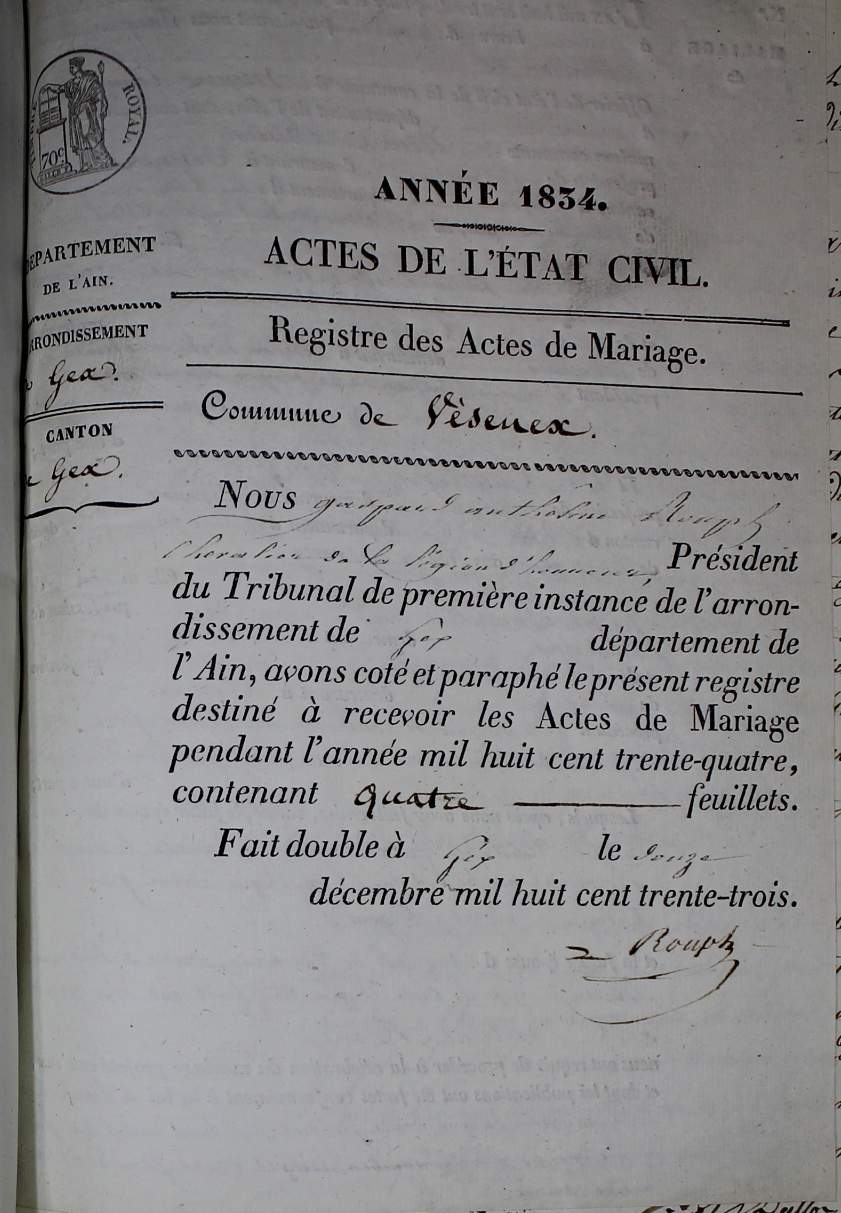 ROYAL.
70c
ANNÉE 1834.
ACTES DE L'ÉTAT CIVIL.
DEPARTEMENT
DE L'AIN.
ARRONDISSEMENT
Gex.
CANTON
Gex.
Registre des Actes de Mariage.
Commune de Vésenex.
Nous gaspard anthelme Rouph
Chevalier de la légion d'honneur, Président
du Tribunal de première instance de l'arron-
dissement de Gex département de
l'Ain, avons coté et paraphé le présent registre
destiné à recevoir les Actes de Mariage
pendant l'année mil huit cent trente-quatre,
contenant quatre feuillets.
Fait double à Gex le douze
décembre mil huit cent trente-trois.
Rouph